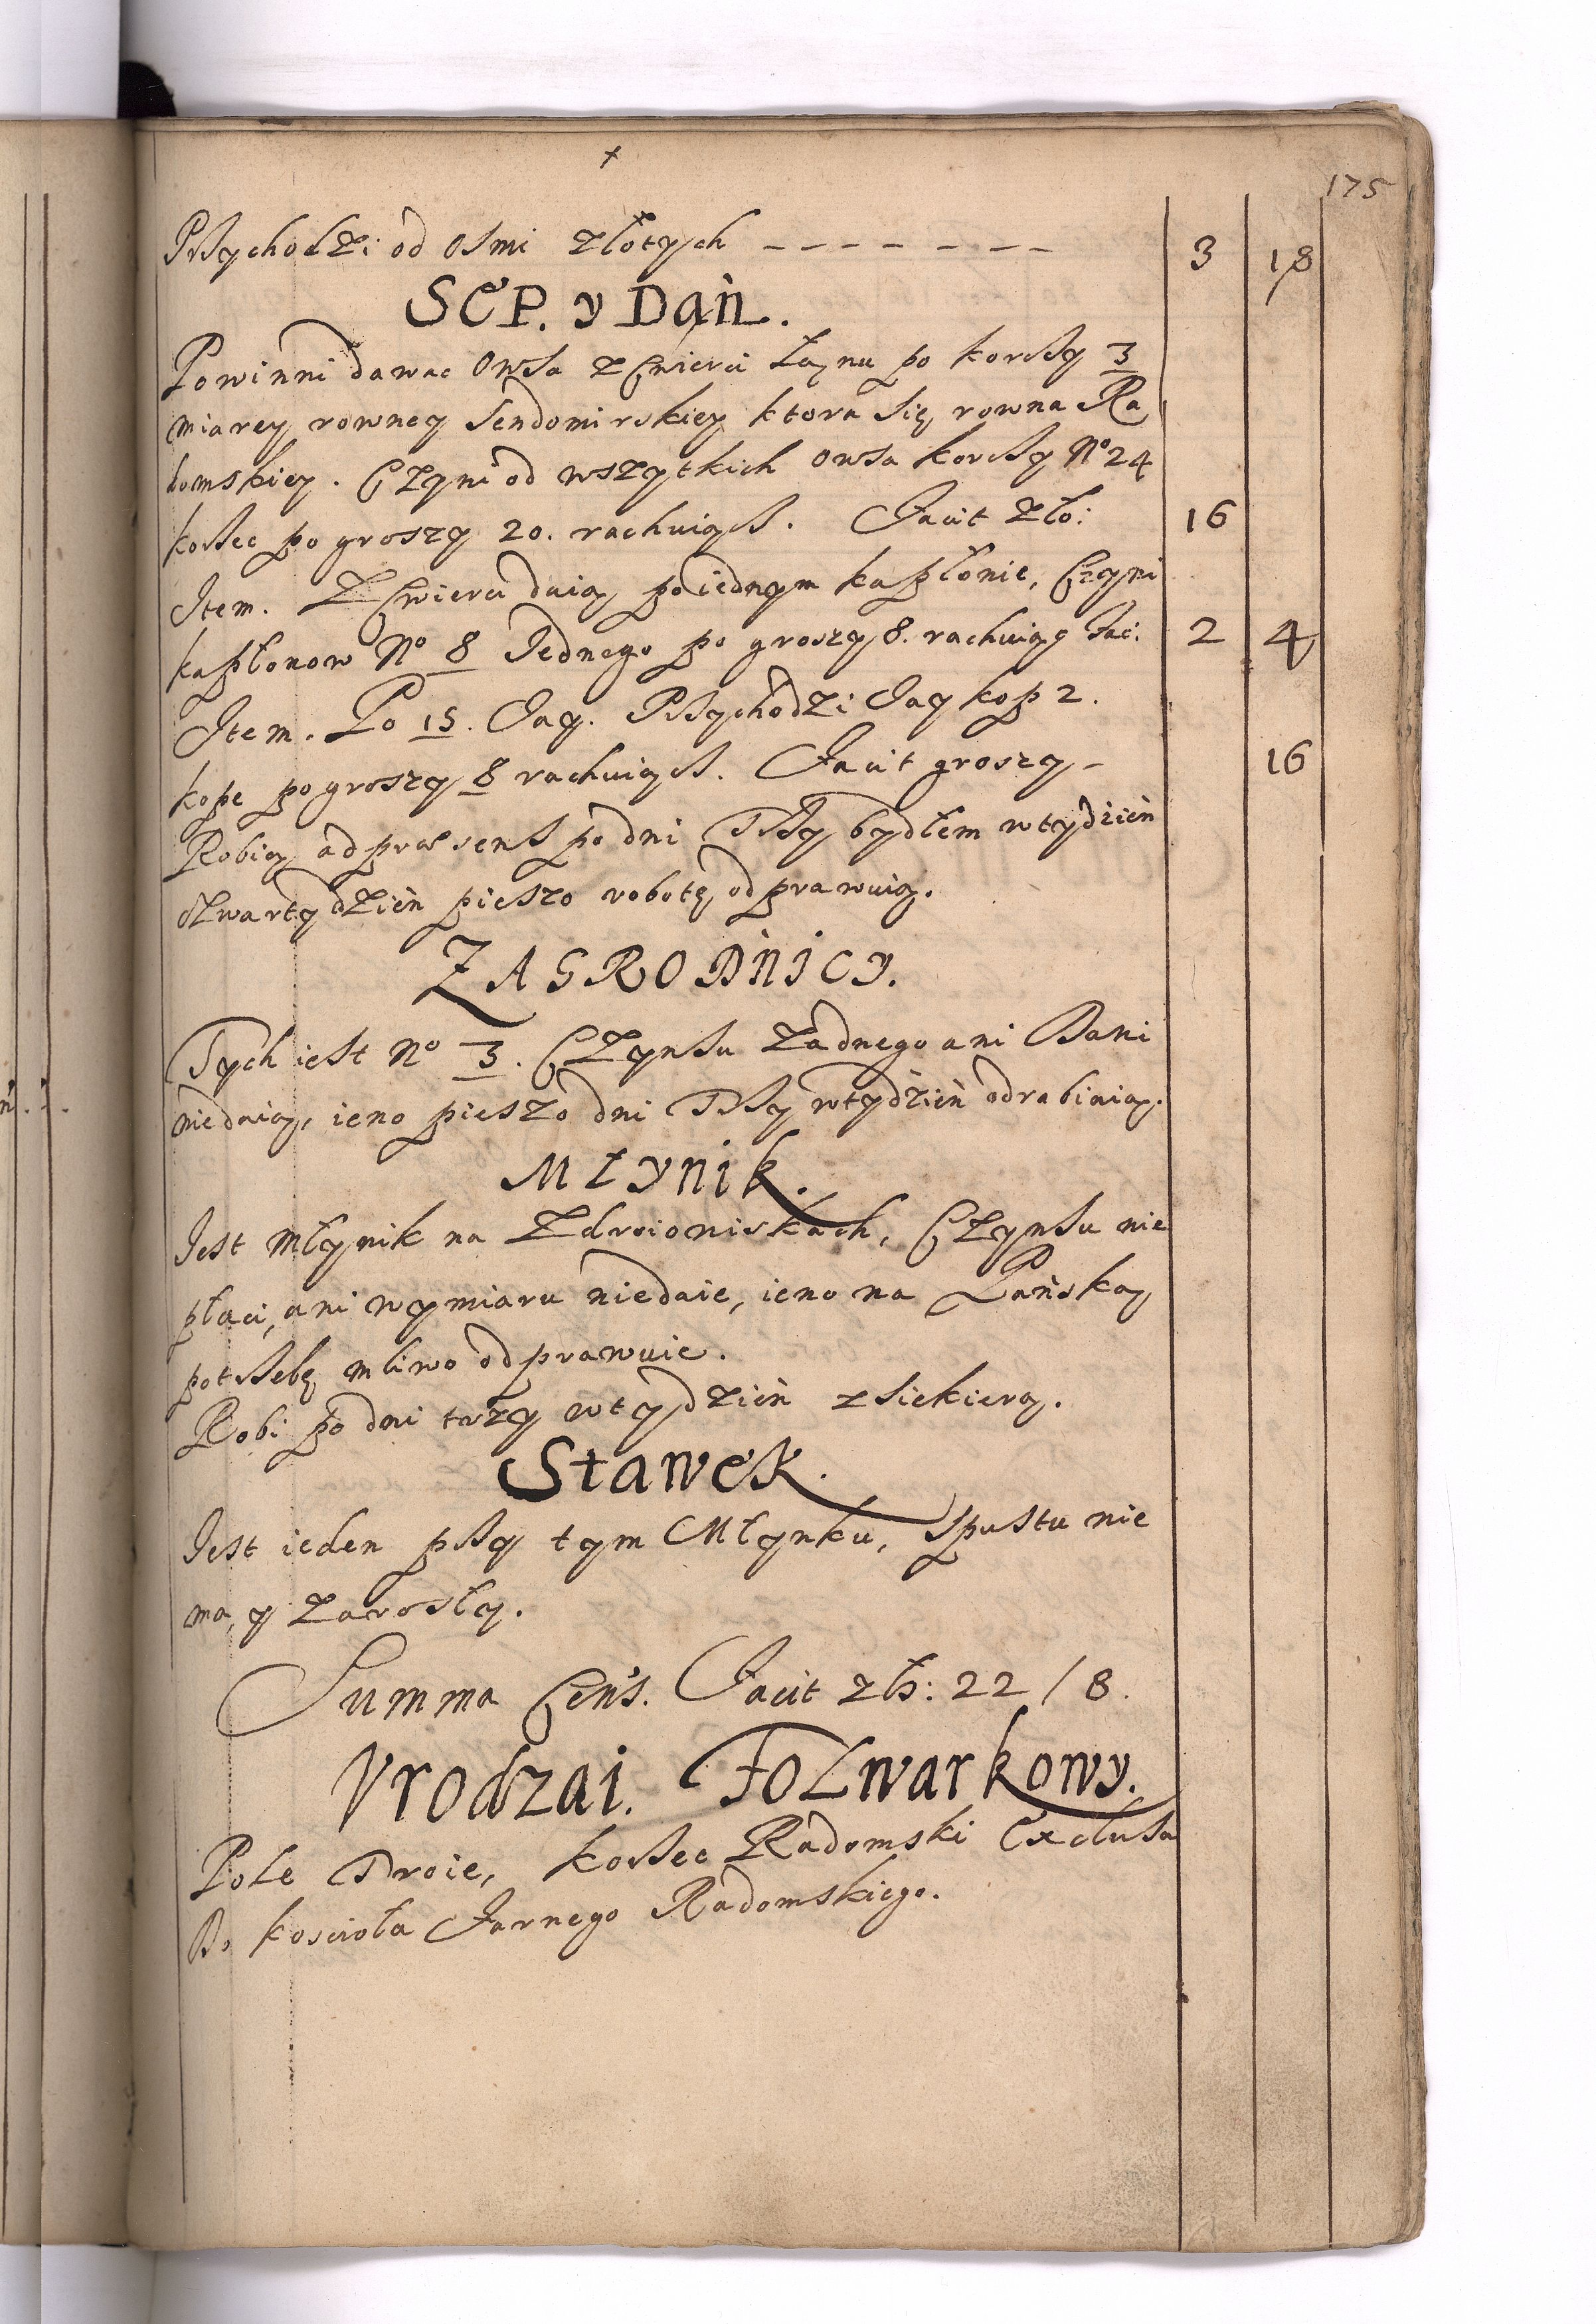 +
175
Przychodzi od osmi złotych - - - - - - - 3 18
SEP. y Dań.
Powinni dawac Owsa z Cwierci Łanu po korczy 3
miarey rowney Sendomirskiey ktora się rowna Ra
domskiey. Czyni od wszytkich owsa korczy No 24
korzec po groszy 20. rachuiącz. Facit zło: 16
Item. Z Cwierci daią po iednym kapłonie, Czyni
kapłonow No 8 Jednego po groszy 8. rachuiąc Faci: 2 4
Item. Po 15. Jay. Przychodzi Jay kop 2.
kope po groszy 8 rachuiącz. Facit groszy - 16
Robią ad præsens po dni Trzy bydłem w tydzień
czwarty dzień pieszo robotę odprawuią.
ZAGRODNICY.
Tych iest No 3. Czynszu żadnego ani Dani
niedaią, ieno pieszo dni Trzy w tydzień odrabiaią.
Młynik.
Jest młynik na Zdroioniskach, Czynszu nie
płaci, ani wymiaru niedaie, ieno na Pańską
potrzebę mliwo odprawuie.
Robi po dni trzy w tydzień z siekierą.
Stawek.
Jest ieden przy tym Młynku, Spustu nie
ma, y zarosły.
Summa Cens. Facit zło: 22 / 8.
Vrodzai. Folwarkowy.
Pole Troie, korzec Radomski Exclusa
Do koscioła Farnego Radomskiego.